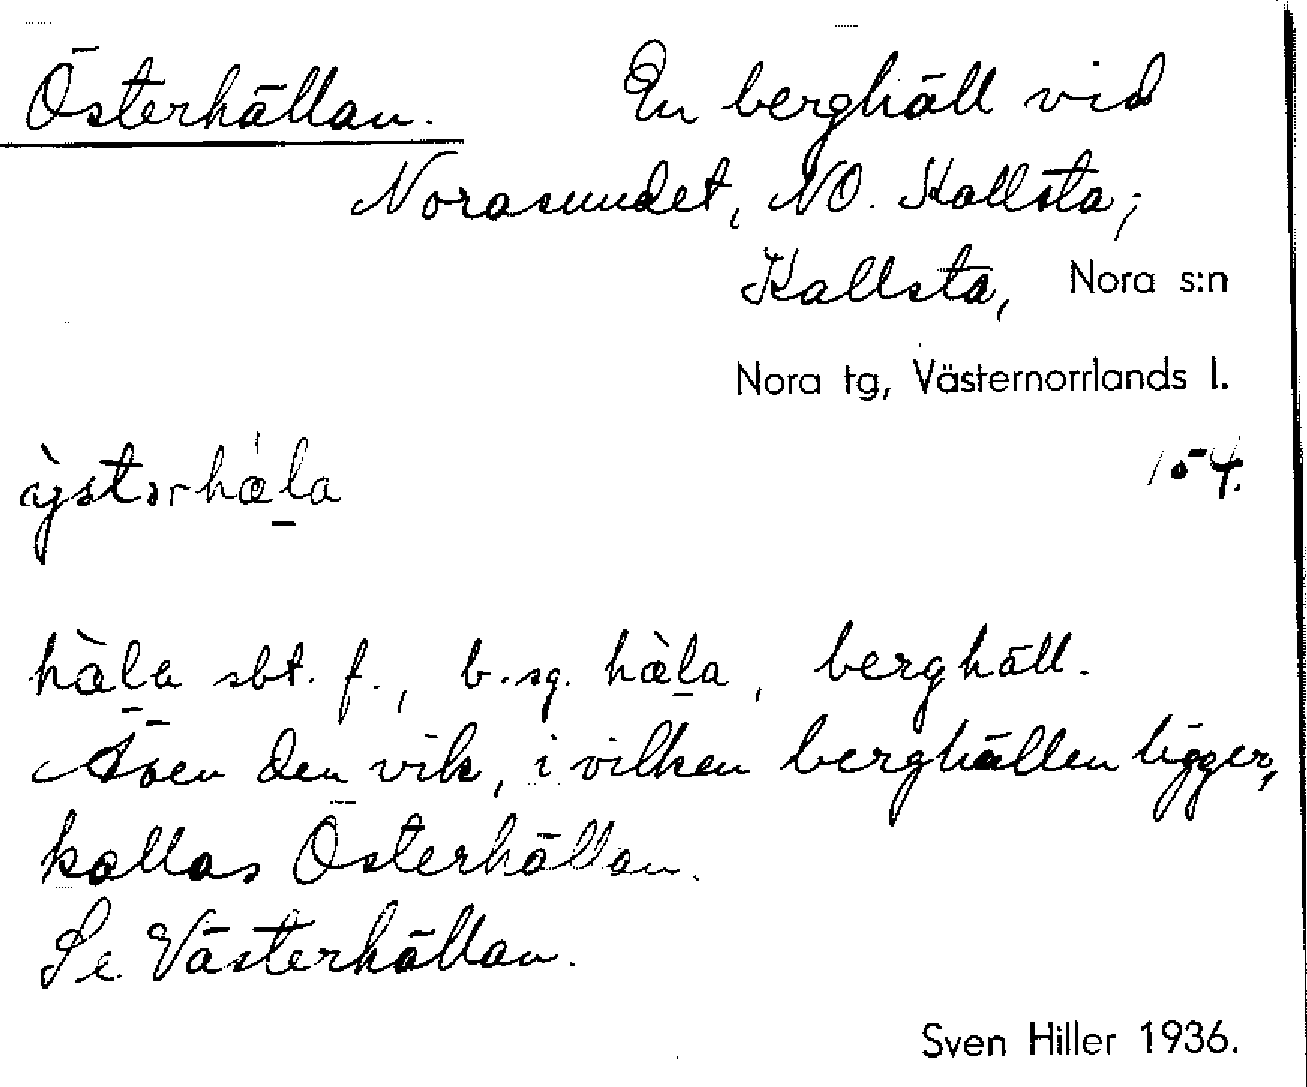 Österhällan. En berghäll vid
Norasundet, NO. Kallsta;
Kallsta, Nora s:n
Nora tg, Västernorrlands l.
154.
hæ̀la sbt. f., b.sg. hæ̀la, berghäll.
Även den vik, i vilken berghällen ligger,
kallas Österhällan.
Se Västerhällan.
Sven Hiller 1936.